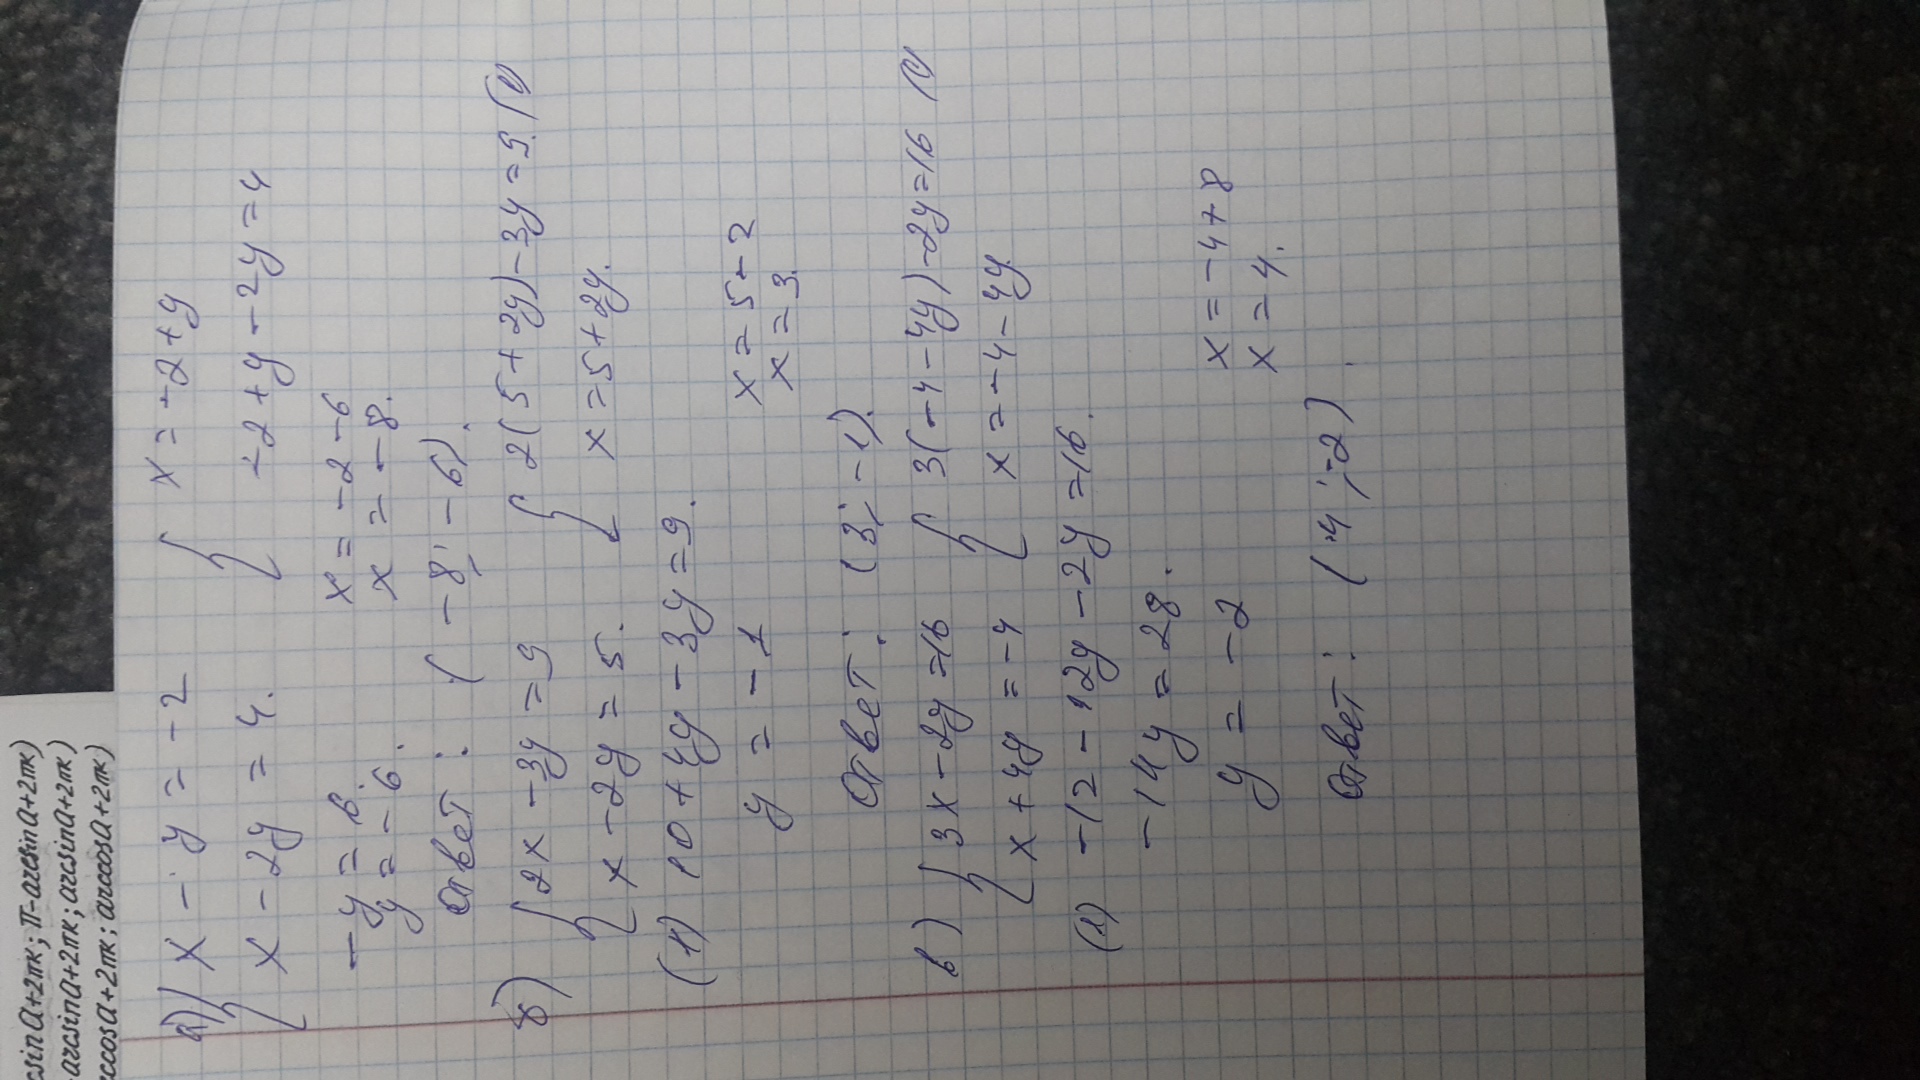 csin a+2πк; π-arcsin a+2πк)
-arcsin a+2πк; arcsin a+2πк)
rccos a+2πк; arccos a+2πк)
а) { x - y = -2 { x = -2 + y
x - 2y = 4. -2 + y - 2y = 4
-y = 6. x = -2 - 6
y = -6. x = -8.
Ответ: (-8; -6).
б) { 2x - 3y = 9 { 2(5 + 2y) - 3y = 9. (1)
x - 2y = 5. x = 5 + 2y.
(1) 10 + 4y - 3y = 9.
y = -1 x = 5 - 2
x = 3.
Ответ: (3; -1).
в) { 3x - 2y = 16 { 3(-4 - 4y) - 2y = 16 (1)
x + 4y = -4 x = -4 - 4y.
(1) -12 - 12y - 2y = 16.
-14y = 28.
y = -2 x = -4 + 8
x = 4.
Ответ: (4; -2).